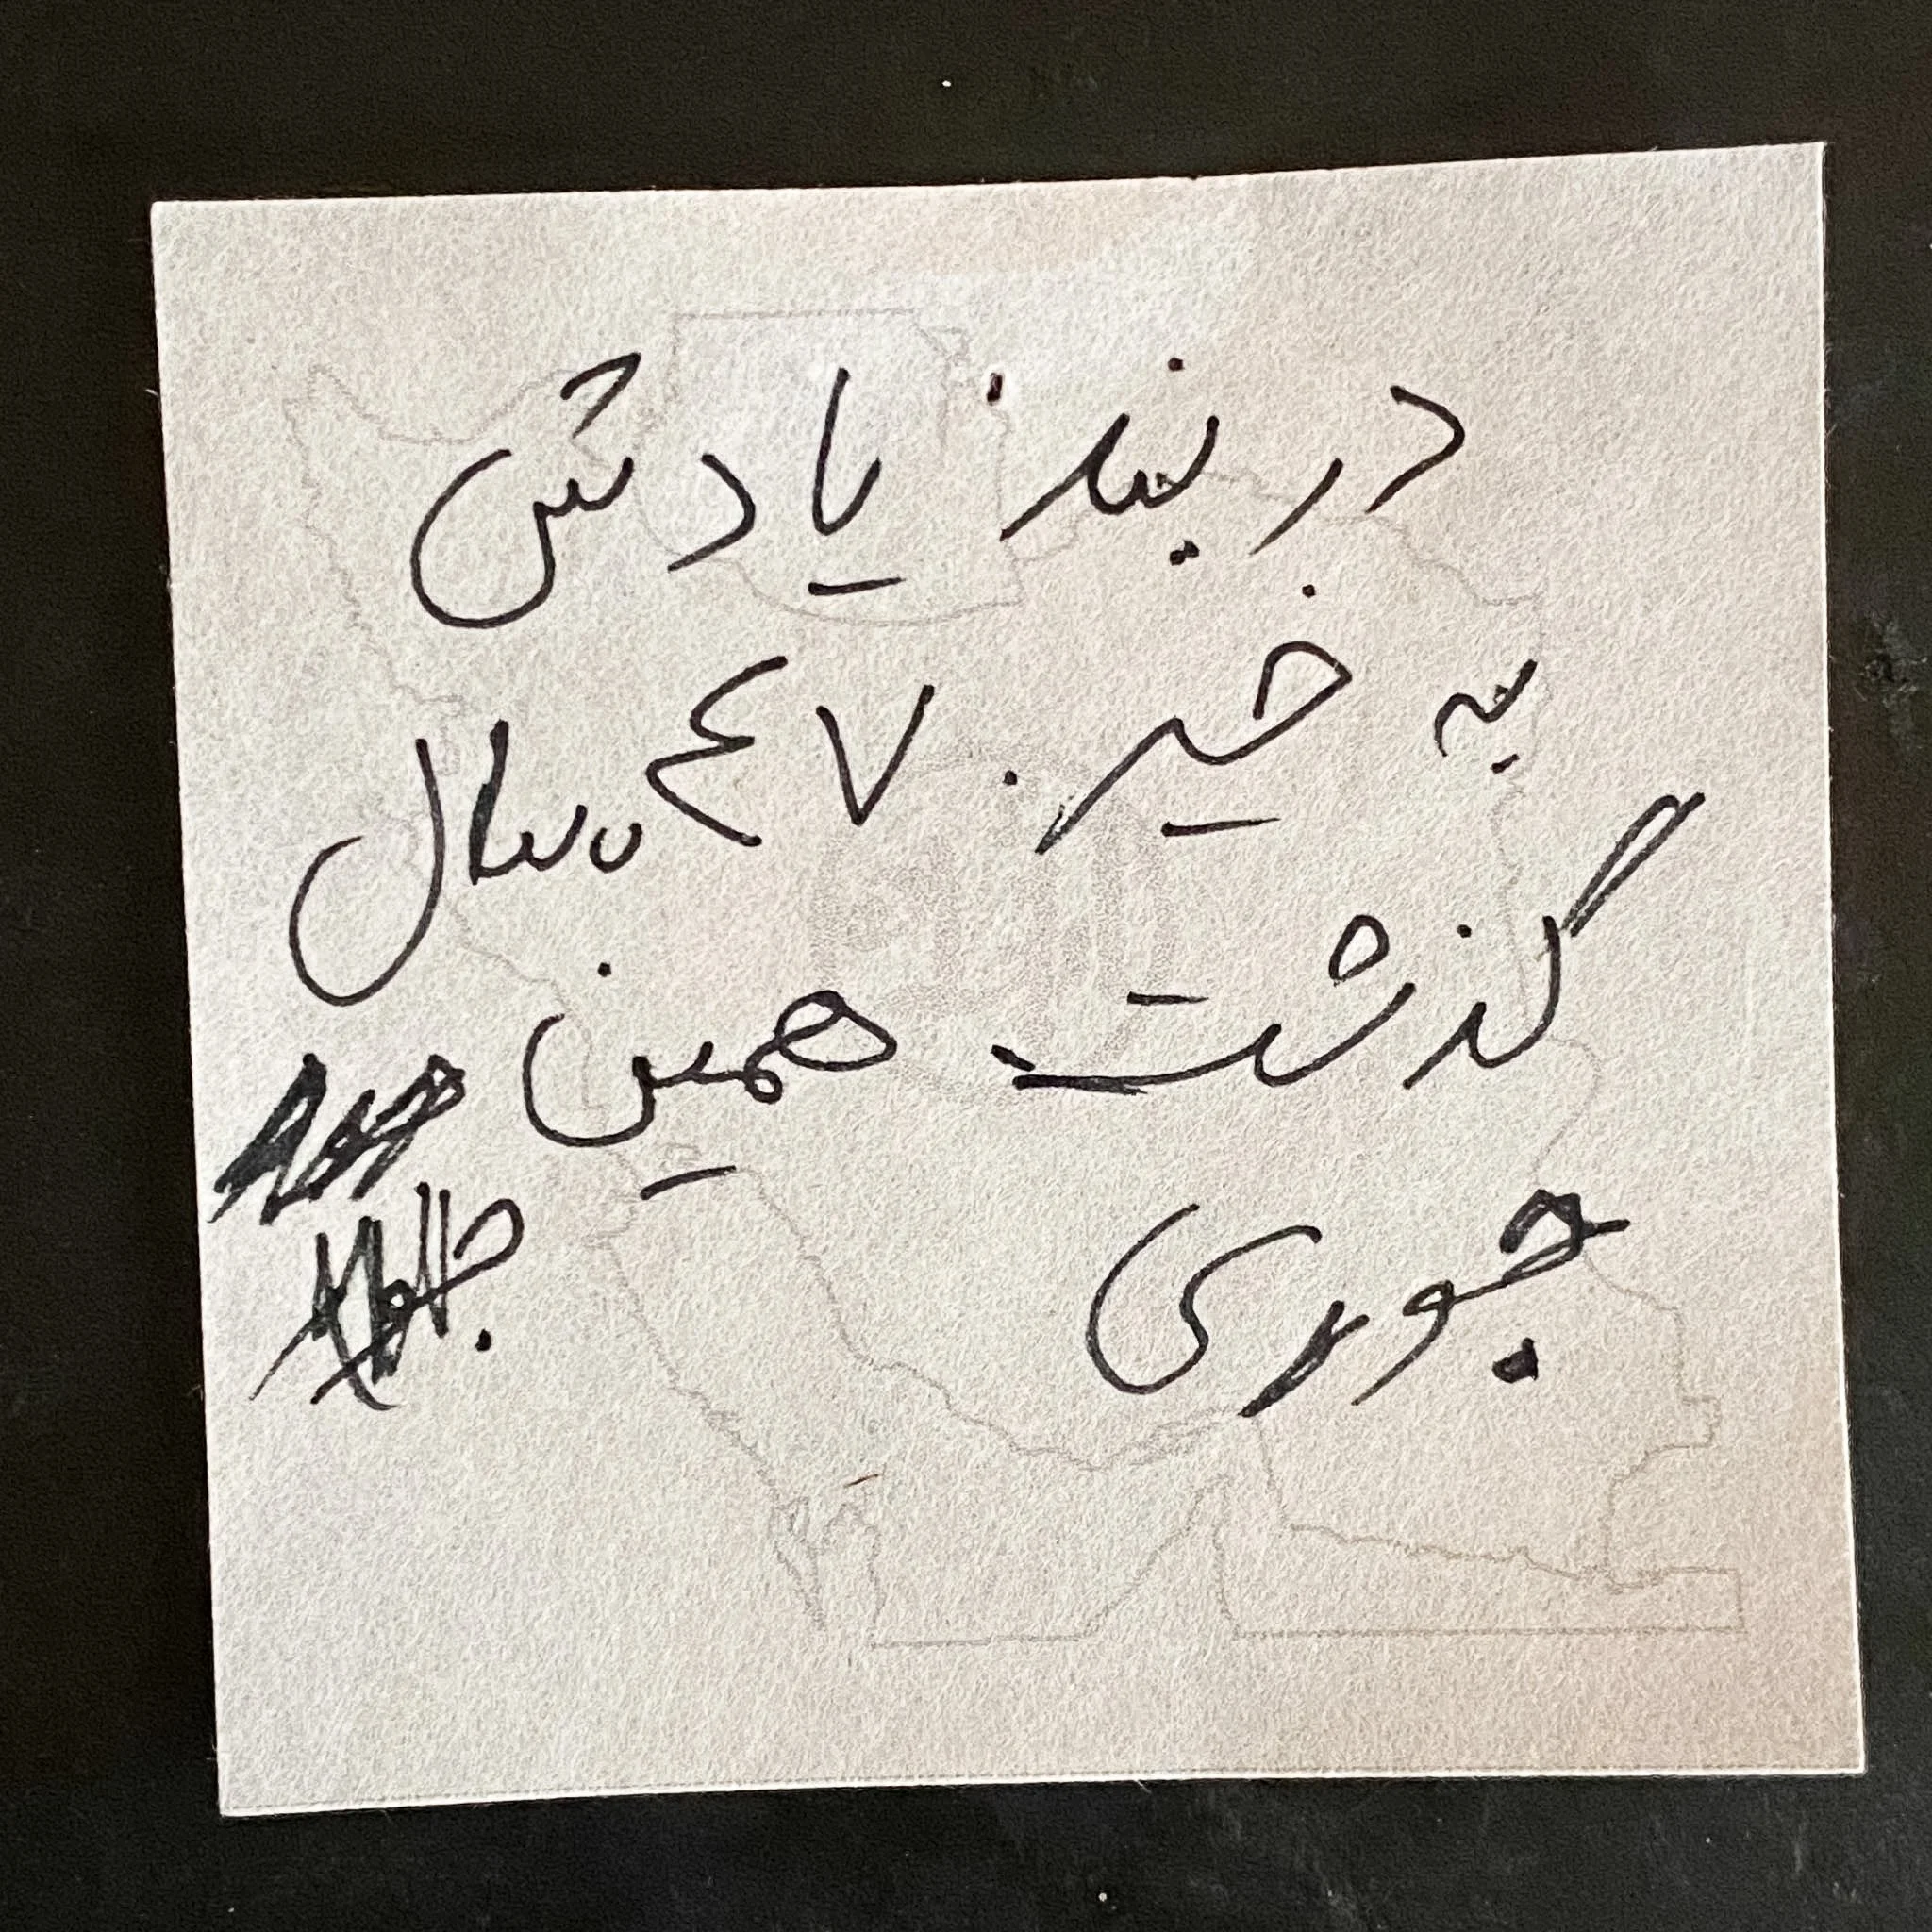 دربند یادش
به خیر. ۴۷ سال
گذشت همین
جوری